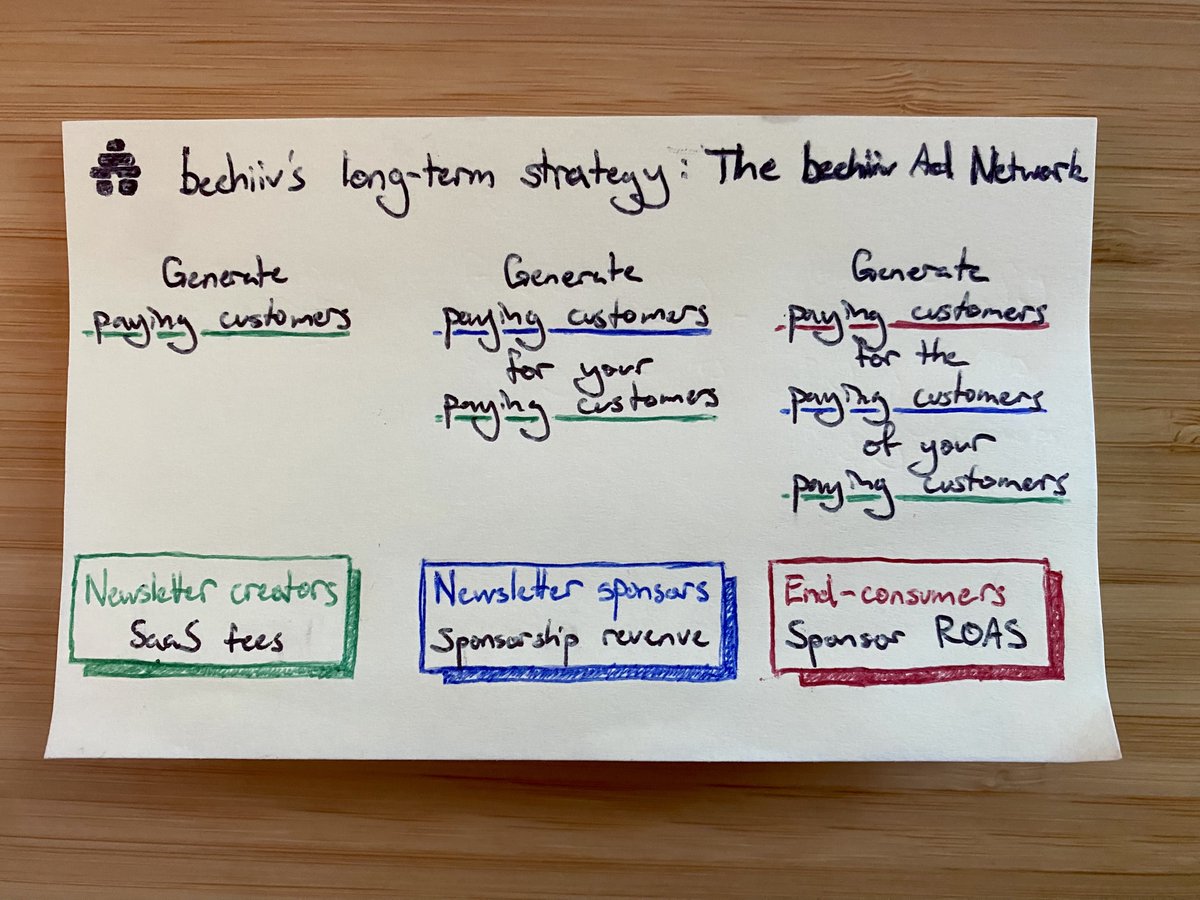 beehiiv's long-term strategy: The beehiiv Ad Network
Generate
paying customers
Generate
paying customers
for your
paying customers
Generate
paying customers
for the
paying customers
of your
paying customers
Newsletter creators
SaaS fees
Newsletter sponsors
Sponsorship revenue
End-consumers
Sponsor ROAS